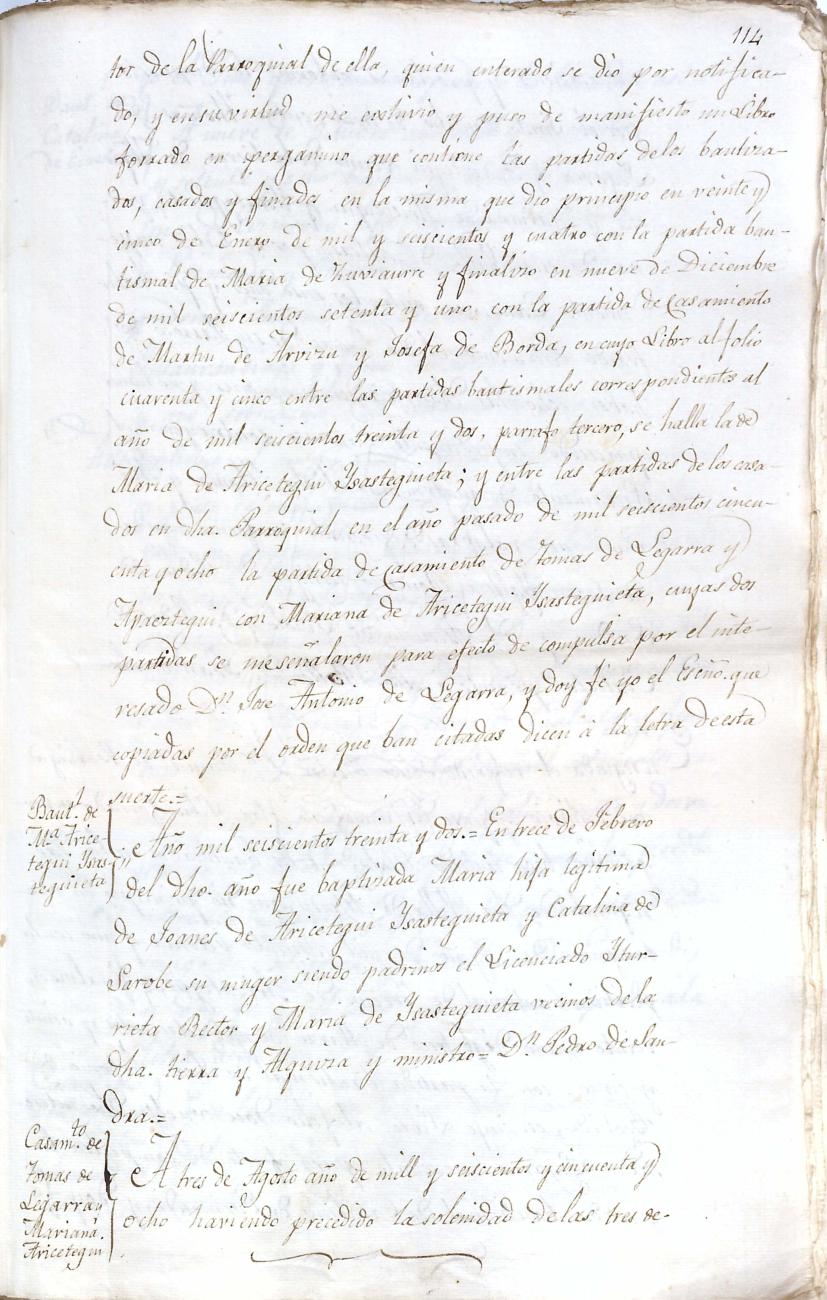 114
tor de la Parroquial de ella, quien enterado se dio por notifica-
do, y en su virtud me exhivio y puso de manifiesto un Libro
forrado en pergamino que contiene las partidas de los bautiza-
dos, casados y finados en la misma que dio principio en veinte y
cinco de Enero de mil y seiscientos y cuatro con la partida bau-
tismal de Maria de Yurviaurre y finalizo en nueve de Diciembre
de mil seiscientos setenta y uno con la partida de Casamiento
de Martin de Arvizu y Josefa de Borda, en cuyo Libro al folio
cuarenta y cinco entre las partidas bautismales correspondientes al
año de mil seiscientos treinta y dos, parrafo tercero, se halla la de
Maria de Aricetegui Ysasteguieta; y entre las partidas de los casa-
dos en dha. Parroquial en el año pasado de mil seiscientos cincu-
enta y ocho la partida de Casamiento de Tomas de Legarra y
Apaeztegui con Mariana de Aricetegui Ysasteguieta, cuyas dos
partidas se me señalaron para efecto de compulsa por el inte-
resado Dn. Jose Antonio de Legarra, y doy fe yo el Esñó. que
copiadas por el orden que ban citadas dicen à la letra de esta
suerte.=
Baut.l de
M.a Arice-
tegui Ysas-
teguieta
Año mil seiscientos treinta y dos.= En trece de Febrero
del dho. año fue baptizada Maria hija legitima
de Joanes de Aricetegui Ysasteguieta y Catalina de
Sarobe su muger siendo padrinos el Licenciado Ytur-
rieta Rector y Maria de Ysasteguieta vecinos de la
dha. tierra y Alquiza y ministro= Dn. Pedro de San-
dra.=
Casam.to de
Tomas de
Legarra y
Mariana.
Aricetegui
A tres de Agosto año de mill y seiscientos y cincuenta y
ocho haviendo precedido la solenidad de las tres de-